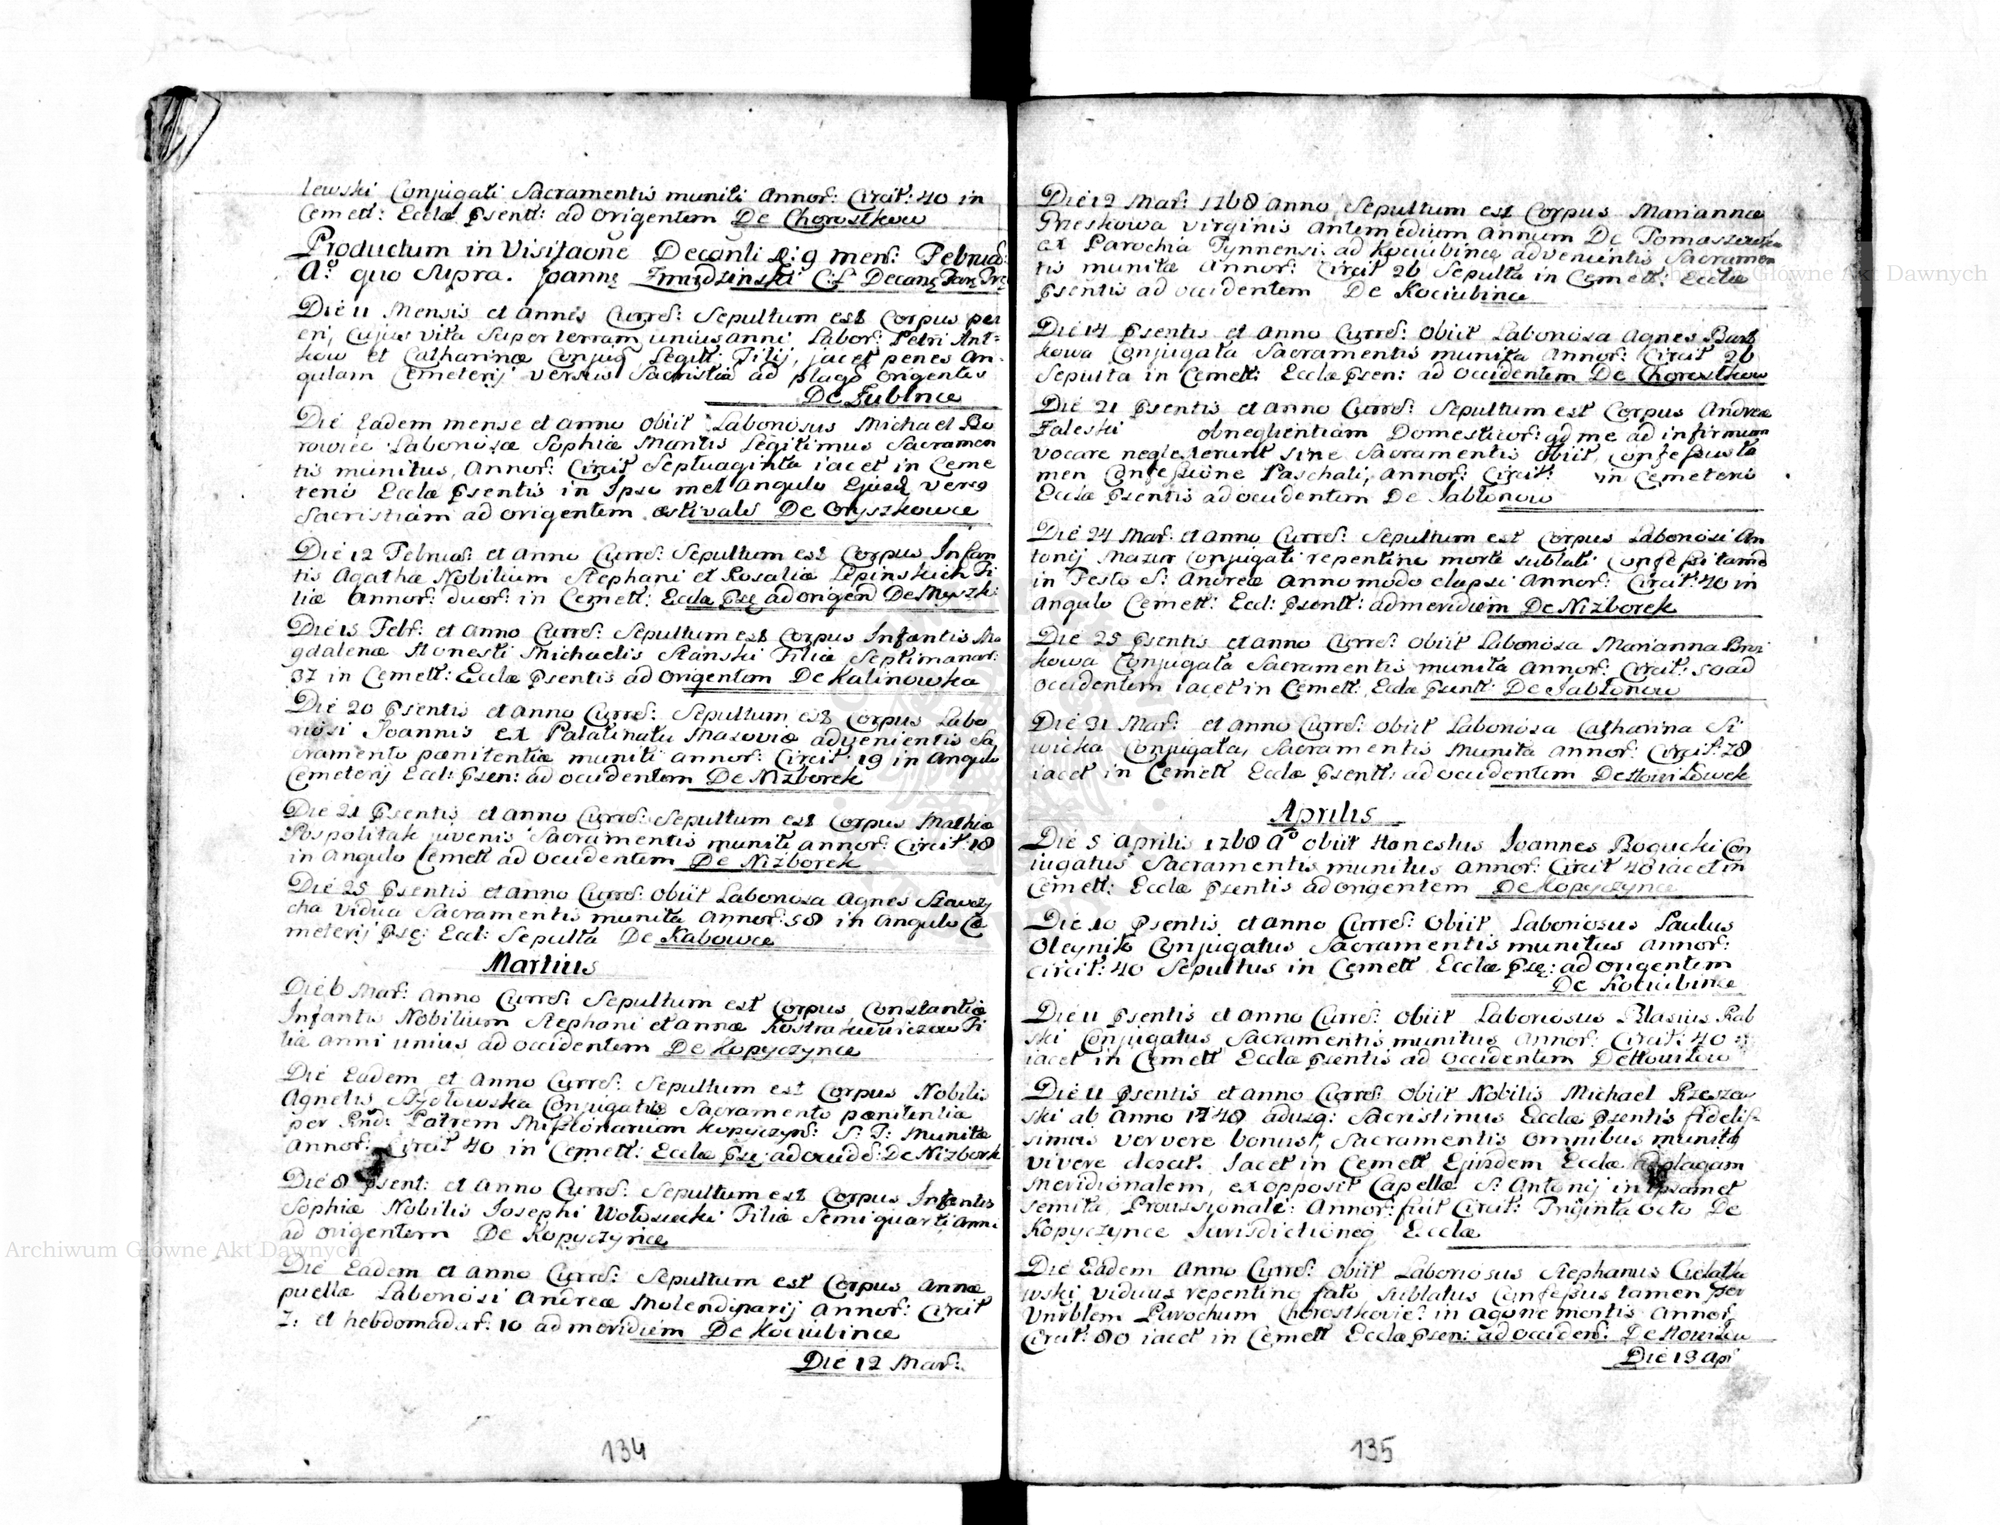 lewski Conjugati Sacramentis muniti Annor: Circit: 40 in
Cemett: Ecclæ Psentt: ad Origentem De Chorostkow
Productum in Visitaone Decanli D: 9 mens: Februar:
Aº quo Supra. Joannes Decanq
Die 11 Mensis et Annis Curres: Sepultum est Corpus pu
eri, Cujus vita Super terram unius anni Labor: Petri Ant-
kow et Catharinæ Conjug Legitt: Filij, jacet penes An-
gulam Cemeterij versus Sacristiã ad plagã origentis
De Zubince
Die Eadem mense et anno Obiit Laboriosus Michael Bo
rowiec Laboriosæ Sophiæ Maritis Legitimus Sacramen
tis munitus, Annor: Circit Septuaginta iacet in Ceme
terio Ecclæ Psentis in Ipso met Angulo Ejusd versq
Sacristiam ad origentem æstivalis De Oryszkowce
Die 12 Februar: et anno Curres: Sepultum est Corpus Infan
tis Agathæ Nobilium Stephani et Rosaliæ Lepinskich Fi
liæ Annor: duor: in Cemett: Ecclæ Pse adorigen De Myszk:
Die 15 Febr: et Anno Curres: Sepultum est Corpus Infantis Ma
gdalenæ Honesti Michaelis Stanski Filiæ Septimanar:
37 in Cemett: Ecclæ Psentis ad Origentem De Kalinowka
Die 20 Psentis et Anno Curres: Sepultum est Corpus Labo
riosi Joannis Ex Palatinatu Masoviæ advenientis Sa
cramento pœnitentiæ muniti annor: Circit 19 in Angulo
Cemeterij Eccl: Psen: ad occidentem De Nizborek
Die 21 Psentis et anno Curres: Sepultum est Corpus Mathiæ
Pospolitak juvenis Sacramentis muniti annor: Circit: 18
in Angulo Cemett ad Occidentem De Nizborek
Die 25 Psentis et anno Curres: Obiit Laboriosa Agnes
cha vidua Sacramentis munita Annor: 58 in Angulo Ce
meterij Pse: Eccl: Sepulta De Rabowce
Martius
Die 6 Mar: Anno Curres: Sepultum est Corpus Constantiæ
Infantis Nobilium Stephani et annæ Fi
liæ anni unius ad occidentem De Kopyczynce
Die Eadem et Anno Curres: Sepultum est Corpus Nobilis
Agnetis Szydlowska Conjugatis Sacramento pœnitentiæ
per Rnd: Patrem Missionarium Kopyczyn: S: J: Munitæ
Annor: Circit 40 in Cemett: Ecclæ Pse: ad occid: De Nizborek
Die 8 Psent: et Anno Curres: Sepultum est Corpus Infantis
Sophiæ Nobilis Josephi Wolosiecki Filiæ Semi quarti anni
ad origentem De Kopyczynce
Die Eadem et anno Curres: Sepultum est Corpus Annæ
puellæ Laboriosi Andreæ Molendiparij Annor: Circit
7: et hebdomadar: 10 ad meridiem De Kociubince
Die 12 Mar:
134
Die 12 Mar: 1768 Anno, Sepultum est Corpus Mariannæ
virginis Antemedium Annum De
ex Parochia Tynnensi, ad Kociubince advenientis Sacramen
tis munitæ Annor: Circit 26 Sepulta in Cemett: Ecclæ
Psentis ad occidentem De Kociubince
Die 14 Psentis et Anno Curres: Obiit Laboriosa Agnes
kowa Conjugata Sacramentis munita Annor: Circit 26
Sepulta in Cemett: Ecclæ Psen: ad Occidentem De Chorostkow
Die 21 Psentis et anno Curres: Sepultum est Corpus Andreæ
Zaleski obneglientiam Domesticor: qd me ad infirmum
vocare neglexerunt Sine Sacramentis Obiit, Confessus ta
men Confessione Paschali, Annor: Circit: in Cemeterio
Ecclæ Psentis ad occidentem De Jablonow
Die 24 Mar: et anno Curres: Sepultum est Corpus Laboriosi An
tonij Mazur Conjugati repentino morte sublati Confessi tamē
in Festo S: Andreæ Anno modo elapsi Annor: Circit: 40 in
Angulo Cemett: Eccl: Psentt: ad meridiem De Nizborek
Die 25 Psentis et anno Curres: Obiit Laboriosa Marianna
kowa Conjugata Sacramentis munita Annor: Circit: 50 ad
Occidentem iacet in Cemett: Ecclæ Psentt: De Jablonow
Die 31 Mar: et anno Curres: Obiit Laboriosa Catharina Si
wicka Conjugata, Sacramentis Munita Annor: Circit: 28
iacet in Cemett Ecclæ Psentt: ad occidentem De Howilowek
Aprilis
Die 5 Aprilis 1768 Aº Obiit Honestus Joannes Bogucki Con
iugatus Sacramentis munitus Annor: Circit 48 iacet in
Cemett: Ecclæ Psentis ad origentem De Kopyczynce
Die 10 Psentis et Anno Curres: Obiit Laboriosus Paulus
Oleynik Conjugatus Sacramentis munitus Annor:
Circit: 40 Sepultus in Cemett Ecclæ Pse: ad origentem
De Kociubince
Die 11 Psentis et Anno Curres: Obiit Laboriosus Blasius Rab
ski Conjugatus Sacramentis munitus Annor: Circit: 40
iacet in Cemett Ecclæ Psentis ad occidentem De Howilow
Die 11 Psentis et anno Curres: Obiit Nobilis Michael Rzeszow
ski ab Anno 1748 adusq: Sacristinus Ecclæ Psentis fidelis-
simus ver vere bonus, Sacramentis omnibus munitq
vivere desiit. Jacet in Cemett Ejusdem Ecclæ ad plagam
Meridionalem, ex opposit Capellæ S: Antonij in ipsamet
semita, Proussionale: Annor: fuit Circit: Triginta Octo De
Kopyczynce Jurisdictioneq Ecclæ
Die Eadem Anno Curres: Obiit Laboriosus Stephanus
wski viduus repentino fato sublatus Confessus tamen per
Vnrblem Parochum Chorostkovie: in Agone mortis Annor:
Circit: 80 iacet in Cemett Ecclæ Psen: ad occiden: De Howilow
Die 13 Apr
135
Archiwum Główne Akt Dawnych
Archiwum Główne Akt Dawnych